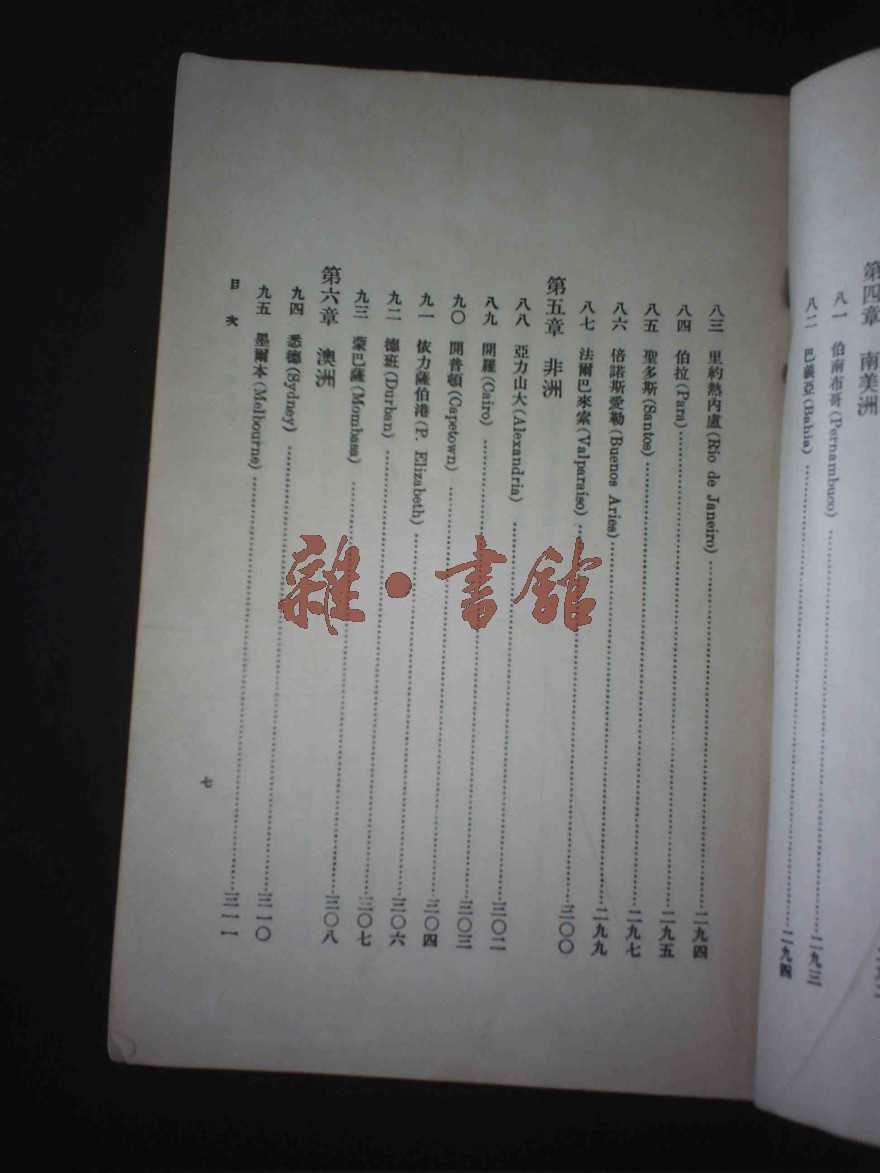 第四章 南美洲
八一 伯南布哥(Pernambuco)……二九三
八二 巴義亞(Bahia)……二九四
八三 里約熱內盧(Rio de Janeiro)……二九四
八四 伯拉(Para)……二九五
八五 聖多斯(Santos)……二九七
八六 倍諾斯愛勒(Buenos Aries)……二九九
八七 法爾巴來索(Valparaiso)……三〇〇
第五章 非洲
八八 亞力山大(Alexandria)……三〇二
八九 開羅(Cairo)……三〇三
九〇 開普頓(Capetown)……三〇四
九一 依力薩伯港(P. Elizabeth)……三〇六
九二 德班(Durban)……三〇七
九三 蒙巴薩(Mombasa)……三〇八
第六章 澳洲
九四 悉德(Sydney)……三一〇
九五 墨爾本(Melbourne)……三一一
目次
七
雜·書館